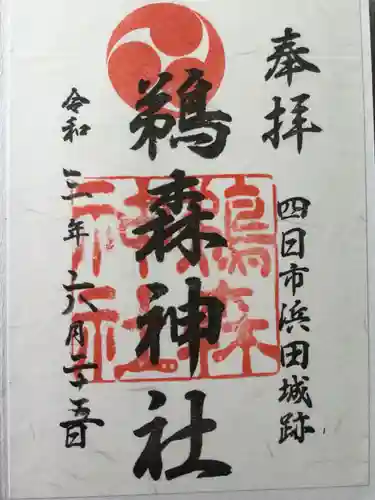 奉拝
四日市浜田城跡
鵜森神社
鵜森神社
令和三年六月二十五日